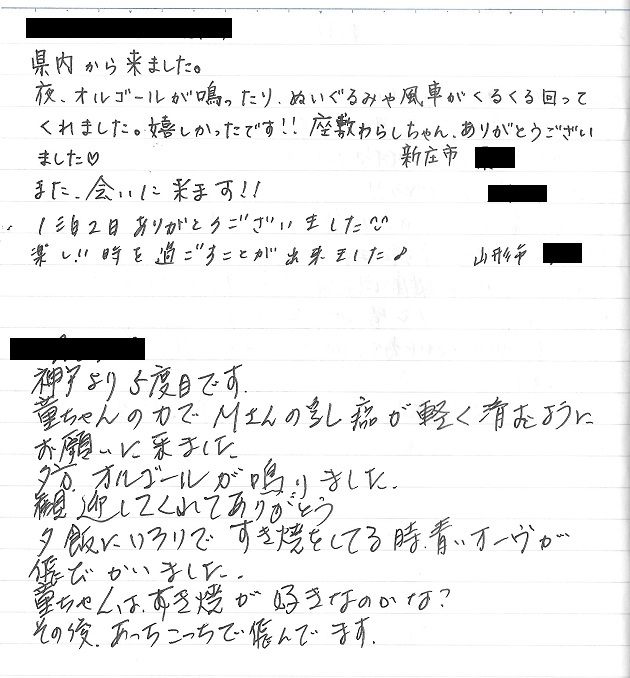 県内から来ました。
夜、オルゴールが鳴ったり、ぬいぐるみや風車がくるくる回って
くれました。嬉しかったです!! 座敷わらしちゃん、ありがとうござい
ました♡ 新庄市
また、会いに来ます!!
1泊2日ありがとうございました
楽しい時を過ごすことが出来ました♪ 山形市
神戸より5度目です。
童ちゃんの力でMさんの乳癌が軽く済むように
お願いに来ました。
夕方、オルゴールが鳴りました。
歓迎してくれてありがとう
夕飯にいろりですき焼をしてる時、青いオーヴが
飛びかいました。
童ちゃんは、すき焼が好きなのかな?
その後、あっちこっちで飛んでます。